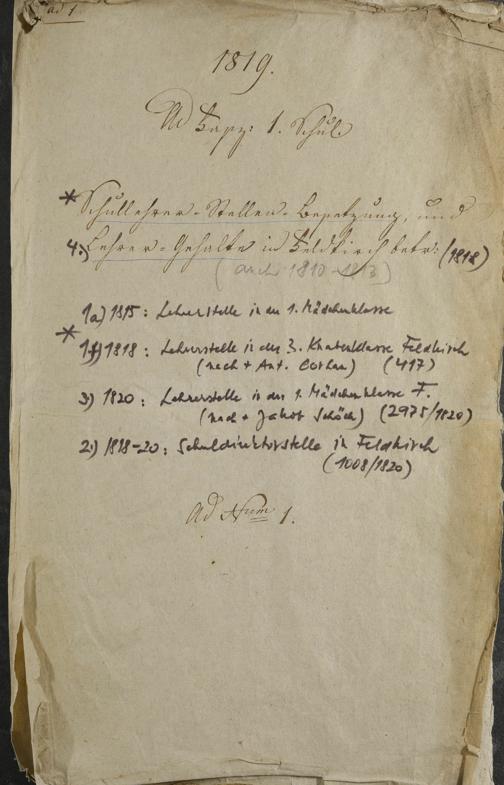 ad 1.
1819.
Ad Fapz: 1. Schul
* Schullehrer-Stellen-Besetzung, und
4.) Lehrer-Gehalte in Feldkirch betr: (1818)
(auch 1810-1813)
1a) 1815: Lehrerstelle in der 1. Mädchenklasse
* 1f) 1818: Lehrerstelle in der 3. Knabenklasse Feldkirch
(nach + Ant. ) (417)
3) 1820: Lehrerstelle in der 1. Mädchenklasse F.
(nach + Jakob Schöch) (2975/1820)
2.) 1818-20: Schuldirektorstelle in Feldkirch
(1008/1820)
Ad Num 1.